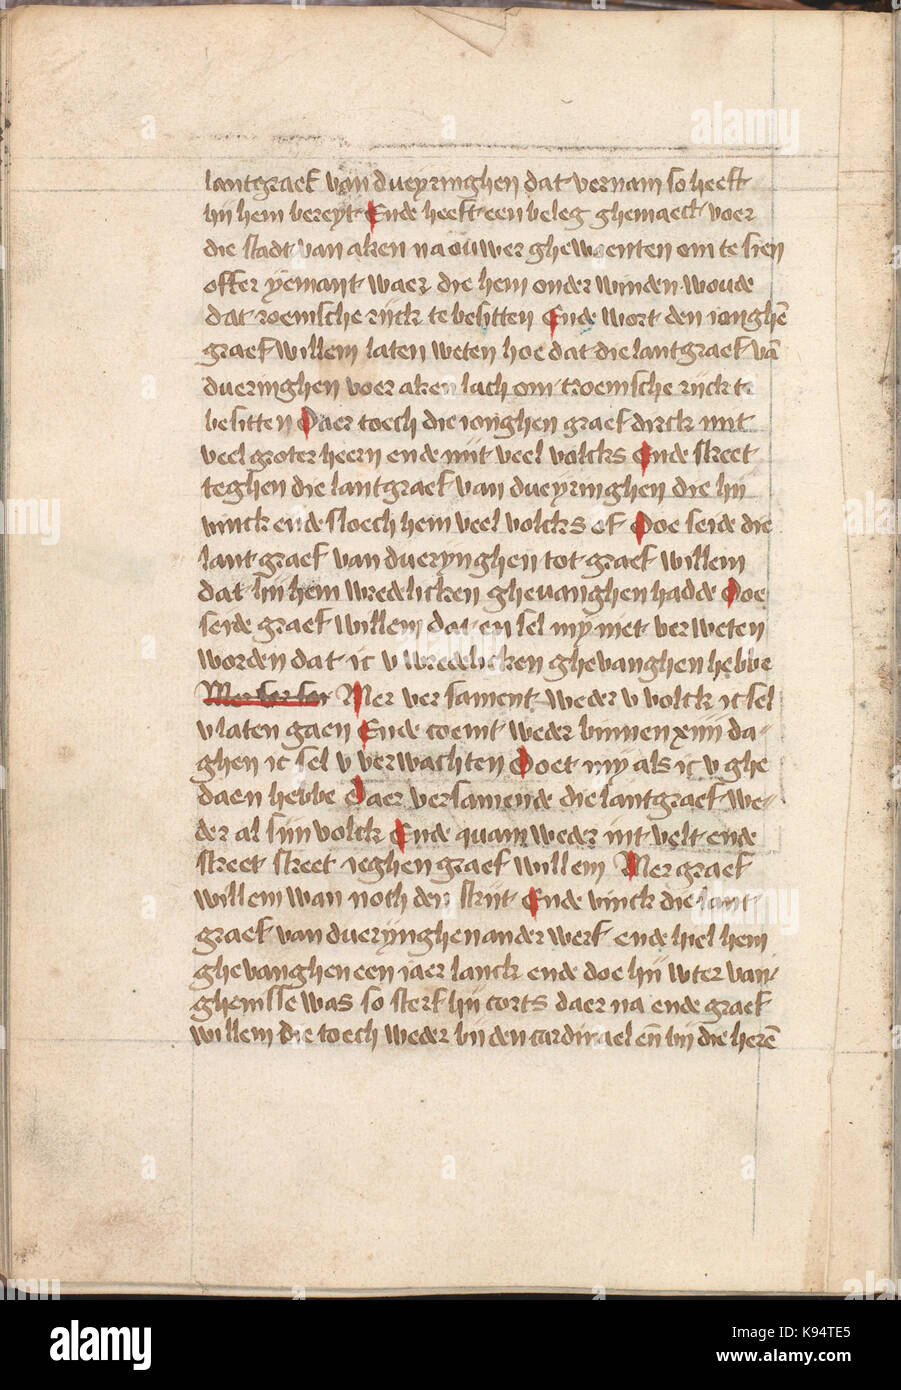 lantgraef van dueyringhen dat vernam so heeft
hij hem bereyt Ende heeft een beleg ghemaect voer
die stadt van aken na ouwer ghewoenten om te sien
offer yemant waer die hem onder winden woude
dat roemsche rijck te besitten Ende wort den ionghē
graef willem laten weten hoe dat die lantgraef vā
dueringhen voer aken lach om troemsche rijck te
besitten Daer toech die ionghen graef dirck mit
veel groter heern ende mit veel volcks Ende street
teghen die lantgraef van dueyringhen die hij
vinck ende sloech hem veel volcks of Doe seide die
lantgraef van duerynghen tot graef willem
dat hij hem wredelicken ghevanghen hadde Doe
seide graef willem dat en sel my niet verweten
worden dat ic v wredelicken ghevanghen hebbe
Mer versament weder v volck ic sel
v laten gaen Ende coemt weder binnen xiiij da-
ghen ic sel v verwachten Doet my als ic v ghe
daen hebbe Daer versamende die lantgraef we-
der al sijn volck Ende quam weder int velt ende
street street ieghen graef willem Mer graef
willem wan noch den strijt Ende vinck die lant
graef van duerynghen ander werf ende hiel hem
ghevanghen een iaer lanck ende doe hij wter van-
ghenisse was so sterf hij corts daer na ende graef
willem die toech weder bij den cardinael eñ bij die herē
a alamy
alamy
K94TE5
www.alamy.com